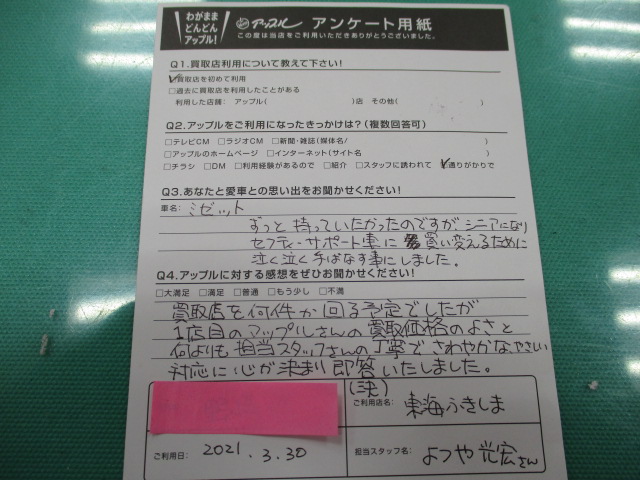 わがまま
どんどん
アップル!
アップル アンケート用紙
この度は当店をご利用いただきありがとうございました。
Q1.買取店利用について教えて下さい!
☑買取店を初めて利用
□過去に買取店を利用したことがある
利用した店舗: アップル( )店 その他( )
Q2.アップルをご利用になったきっかけは?(複数回答可)
□テレビCM □ラジオCM □新聞・雑誌(媒体名/ )
□アップルのホームページ □インターネット(サイト名 )
□チラシ □DM □利用経験があるので □紹介 □スタッフに誘われて ☑通りがかりで
Q3.あなたと愛車との思い出をお聞かせください!
車名: ミゼット
ずっと持っていたかったのですが、シニアになり
セフティ・サポート車に買い変えるために
泣く泣く手ばなす事にしました。
Q4.アップルに対する感想をぜひお聞かせください!
□大満足 □満足 □普通 □もう少し □不満
買取店を何件か回る予定でしたが
1店目のアップルさんの買取価格のよさと
何よりも担当スタッフさんの丁寧でさわやかなやさしい
対応に心が決まり即答いたしました。
(決)
ご利用店名: 東海ふきしま
ご利用日: 2021.3.30
担当スタッフ名: よつや光宏さん